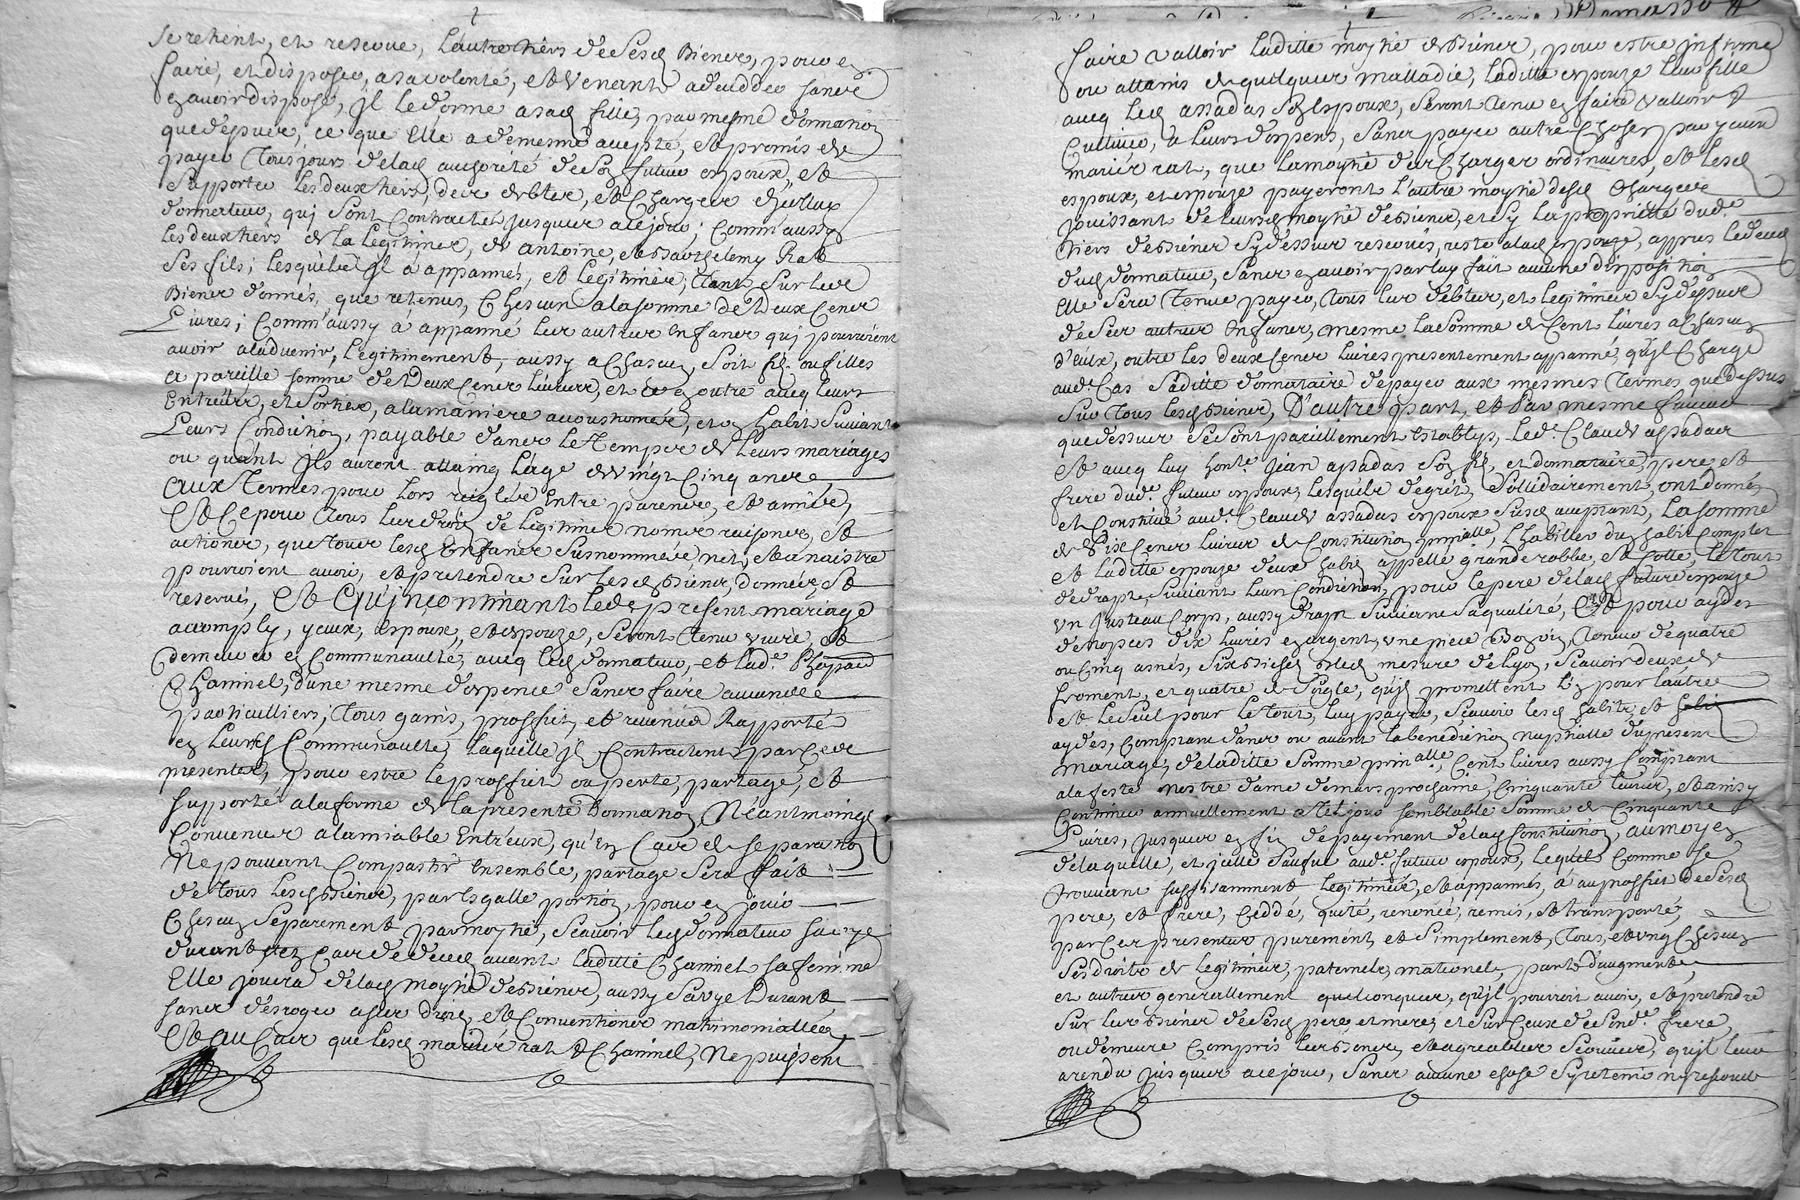 se retient, et reserve, l'autre tiers de sesd biens, pour en
faire, et disposer, a sa volonté, et venant a decedder sans
en avoir disposé, il le donne a sad fille, par mesme donnation
que dessus, ce que elle a de mesme accepté, et promis de
payer tousjours de lad authorité de son futur espoux, et
supporter les deux tiers, des debtes, et charges d'iceluy
donnateur, qui sont contractés jusques a ce jour, comm'aussy
les deux tiers de la legitimes, de Antoine, et Barthelemy Rat
ses fils, lesquels il à appannés, et legitimés, tant sur les
biens donnés, que retenus, chescun a la somme de deux cens
Livres; comm'aussy à appanné les autres enfans qui pourroient
avoir a l'advenir, legitimement, aussy a chascun, soit fils ou filles
a pareille somme de deux cens livres, et ce en outre avec leurs
entrées, et sorties, a la maniere accoustumée, et en habit suivant
Leurs condiction, payable dans le temps de leurs mariages
ou quant ils auront attaing l'age de vingt cinq ans
aux termes pour lors reiglés entre parens, et amies,
et ce pour tous les droits de legitimes noms raisons, et
actions, que tous lesd enfans susnommés, nés, et a naistre
pourroient avoir, et pretendre sur lesd biens, donnés, et
reservés, et qu'incontinant led present mariage
accomply, yceux, espoux, et espouze, seront tenu vivre, et
demeurer en communaulté, avecq led donnateur, et lad.e
Chaminel, d'une mesme despence sans faire aucune
particulliers, tous gains, proffits, et revenus rapporté
en leurs communaulté, laquelle ils contractent par ces
presentes, pour estre le proffit ou perte, partagé, et
supporté a la forme de la presente donnation, Neantmoings
convenues a l'amiable entr'eux, qu'en cas de separation
Ne pouvant compastir ensemble, partage sera fait
de tous lesd biens, par esgalle portion, pour en jouir
chescun separement par moytié, scavoir led donnateur sa vye
durant et en cas de deces avant laditte Chaminel sa femme
elle jouira de lad moytié de biens, aussy sa vye durant
sans desroger a ses droits, et conventions matrimonialles,
et au cas que lesd mariés Rat et Chaminel, Ne puissent
faire valloir laditte moytié de biens, pour estre infirme
ou attains de quelques malladie, laditte espouze leur fille
avecq led assadas son espoux, seront tenu en faire valloir
cultiver, a leurs despens, sans payer autre choses par yceux
mariés rat, que la moytié des charges ordinaires, et lesd
espoux, et espouze payeront l'autre moytié desd charges
jouissant de leursd moytié de biens, et sy la proprietté dud.
tiers de biens sy dessus reservés, reste a lad espouze, apprès le deces
dud donnateur, sans en avoir par luy fait aucune disposition
elle sera tenue payer, tous les debtes, et legitimes sy dessus
de ses autres enfans, mesme la somme de cent livres a chascun
d'eux, outre les deux cens livres presentement appanné, qu'il charge
aud. cas saditte donnataire de payer aux mesmes termes que dessus
sur tous lesd biens, D'autre part, et par mesme faveur
que dessus se sont pareillement establys, led. Claude assadas
et avecq luy hon.te Jean assadas son fils, et donnataire, pere et
frere dud. futur espoux, lesquels de gré, solidairement, ont donné
et constitué aud. Claude assadas espoux susd acceptant, la somme
de six cens livres de constitution prin.alle, l'habiller du habit complet
et laditte espouze deux habits appellé grande robbe, et cotte, le tout
de drapts, suivant leur condiction, pour le pere de lad future espouze
un justeau corps, aussy drapt suivant sa qualité, et pour ayder
de nopces dix livres en argent, une piece bon vin, tonneu de quatre
ou cinq asnés, six bichets bled mesure de Lyon, scavoir deux de
froment, et quatre de soigle, qu'ils promettent l'un pour l'autre
et le seul pour le tout, luy payer, scavoir lesd habits et
aydes, comptant dans ou avant la benediction nuptialle du present
mariage, de laditte somme prin.alle, cent livres aussy comptant
a la feste nostre dame de mars prochaine, cinquante livres, et ainsy
continuer annuellement a tel jour semblable somme de cinquante
Livres, jusques en fin de payement de lad constitution, au moyen
de laquelle, et icelle sauf aud.e futur espoux, lequel comme se
trouvant suffisamment legitimés, et appannés, à au proffit de sesd
pere, et frere, ceddé, quité, renoncé, remis, et transporté,
par ces presentes purement, et simplement, tous, et ung chescun
ses droits de legitimes, paternels, maternels, parts d'augments,
et autres generallement quelconques, qu'il pourroit avoir, et pretendre
sur les biens de sesd pere, et mere, et sur ceux de sond.e frere,
ou demeure compris les bons, et agreables services, qu'il leur
a rendu jusques a ce jour, sans aucune chose sy retenir ny reserver